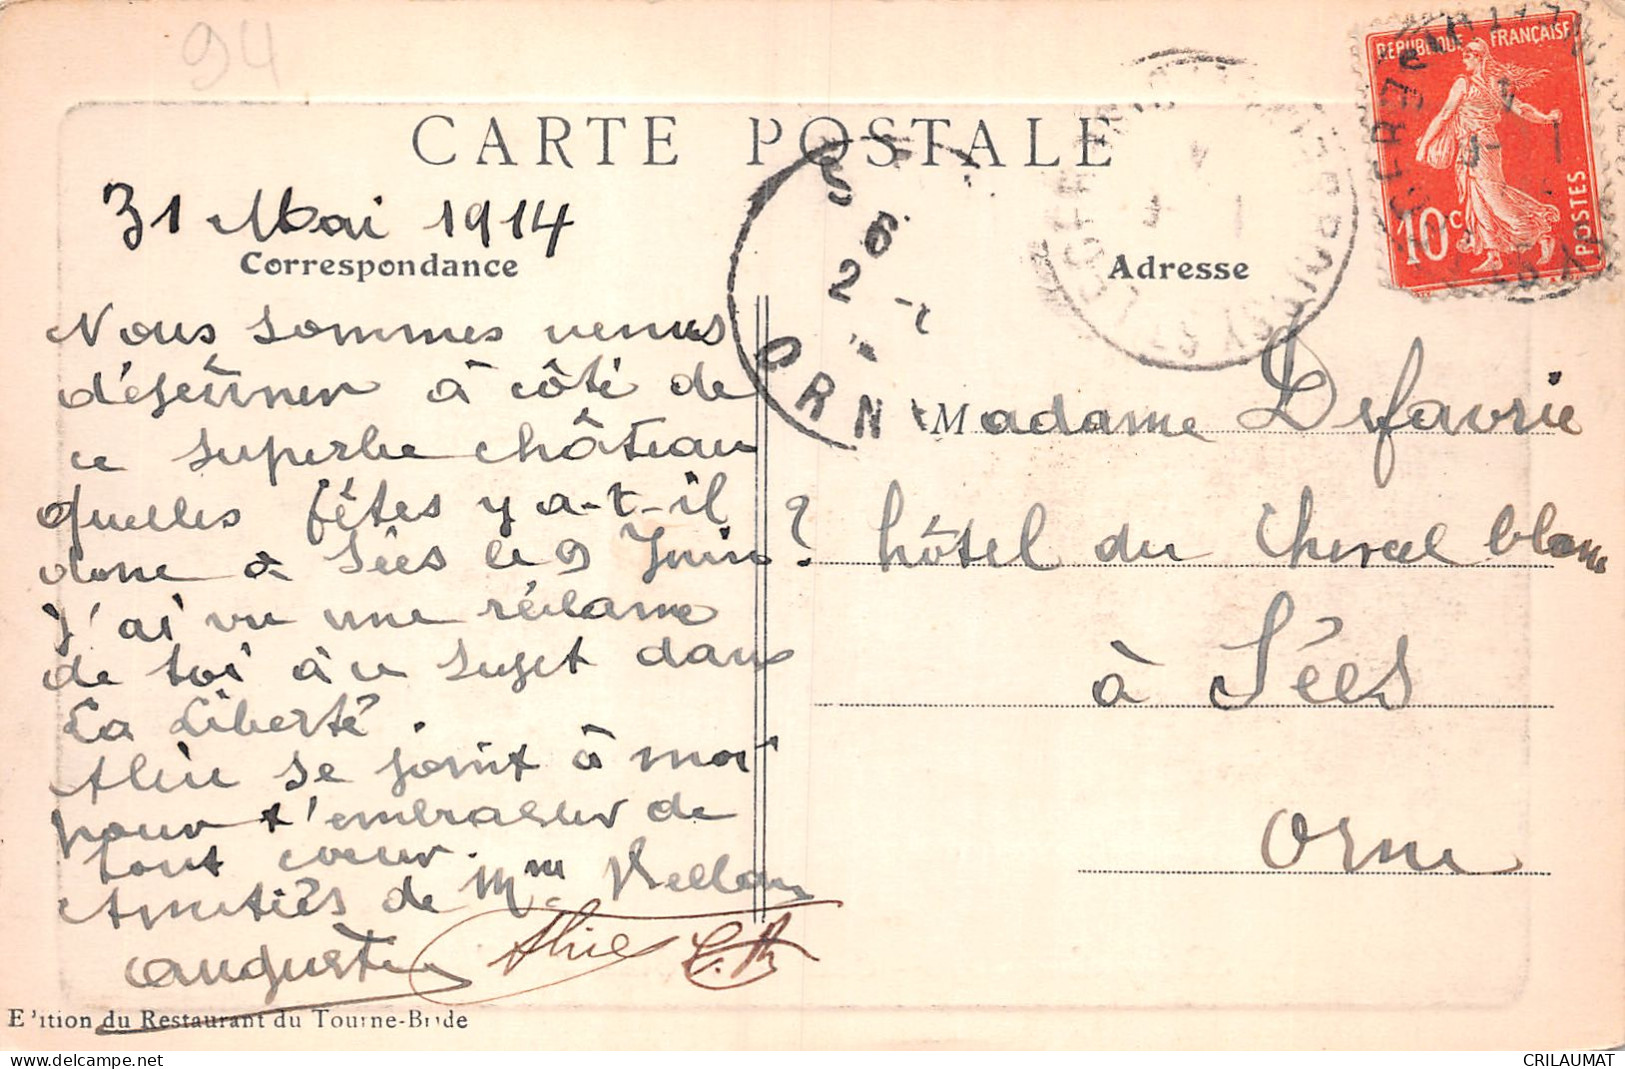 94
CARTE POSTALE
31 Mai 1914
Correspondance
Nous sommes venus
déjeûner à côté de
ce superbe château
quelles fêtes y a-t-il
donc à Sées le 9 Juin ?
J'ai vu une réclame
de toi à ce sujet dans
La Liberté
Alice se joint à moi
pour t'embrasser de
tout coeur.
Amitiés de Mme
Augustine Alice
Edition du Restaurant du Tourne-Bride
Adresse
Madame Desfavrie
hôtel du Cheval blanc
à Sées
Orne
REPUBLIQUE FRANÇAISE
10c POSTES
S
6
2 -
ORN
CRILAUMAT
www.delcampe.net